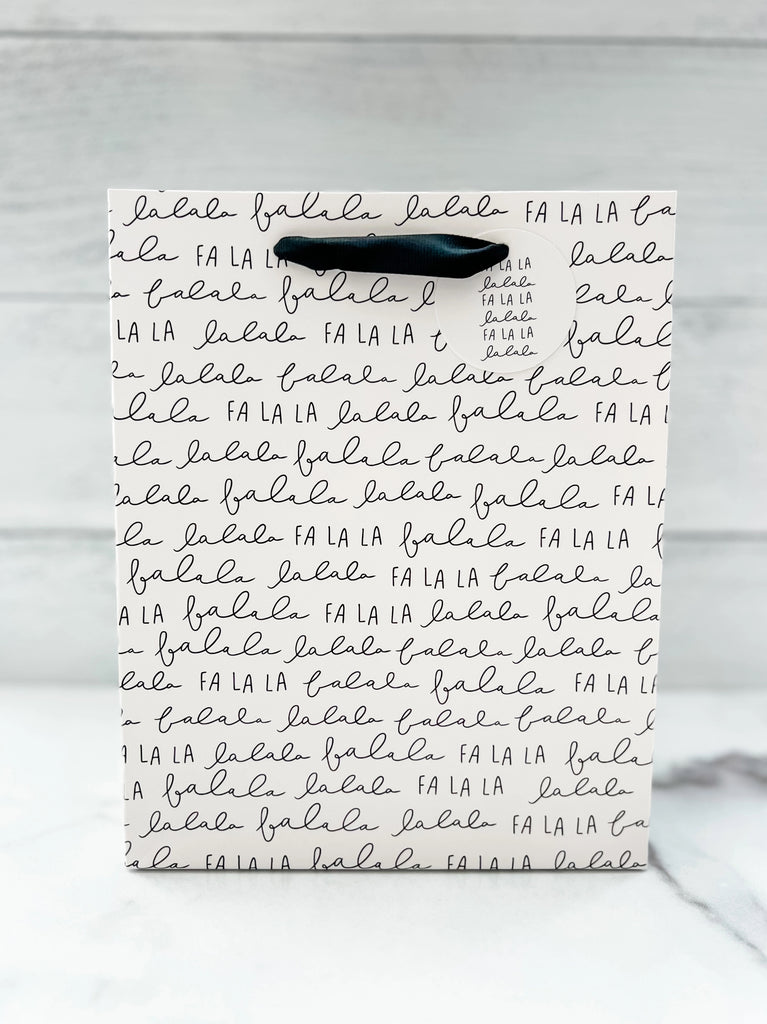 lalala falala lalala FA LA LA fa
ala FA LA L
falala falala l ala lala
LA LA lalala FA LA LA falal
la lalala falala lalala falala f
lala FA LA LA lalala falala FA LA
ala lalala falala falala lalala
alala falala lalala falala FA LA
la lalala FA LA LA falala FA LA LA f
falala lalala FA LA LA falala la
A LA falala FA LA LA lalala falala
a falala lalala falala lalala f
lala FA LA LA falala falala FA LA LA
a falala lalala falala falala l
A LA LA lalala falala FA LA LA fala
LA falala lalala FA LA LA lalala
lalala falala lalala FA LA LA fa
ala FA LA LA falala FA LA LA lalala
FA LA LA
lalala
FA LA LA
lalala
FA LA LA
lalala